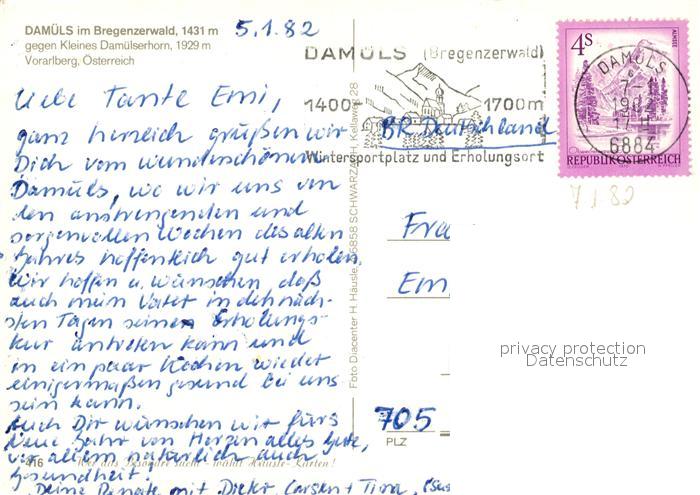 DAMÜLS im Bregenzerwald, 1431 m
gegen Kleines Damülserhorn, 1929 m
Vorarlberg, Österreich
5.1.82
Liebe Tante Emi,
ganz herzlich grüßen wir
Dich vom wunderschönen
Damüls, wo wir uns von
den anstrengenden und
sorgenvollen Wochen des alten
Jahres hoffentlich gut erholen.
Wir hoffen u. wünschen, daß
auch mein Vater in den näch-
sten Tagen seine Erholungs-
kur antreten kann und
in ein paar Wochen wieder
einigermaßen gesund bei uns
sein kann.
Auch Dir wünschen wir fürs
Neue Jahr von Herzen alles Gute,
vor allem natürlich auch
Gesundheit.
Deine Renate mit Dieter, Carsten + Tina,
416 Wer das Besondere sucht - wählt Häusle-Karten!
Foto Diacenter H. Häusle, A-6858 SCHWARZACH, Kellaweg 28
DAMÜLS (Bregenzerwald)
1400 1700m
Wintersportplatz und Erholungsort
BR Deutschland
4S
ALMSEE
REPUBLIK ÖSTERREICH
DAMÜLS
6884
7.1.82
Fra
Em
705
PLZ
privacy protection
Datenschutz